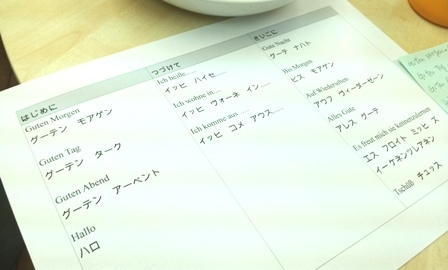 はじめに
Guten Morgen
グーテン モアゲン
Guten Tag
グーテン ターク
Guten Abend
グーテン アーベント
Hallo
ハロ
つづけて
Ich heiße.....
イッヒ ハイセ.....
Ich wohne in....
イッヒ ヴォーネ イン.....
Ich komme aus......
イッヒ コメ アウス.....
さいごに
Gute Nacht
グーテ ナハト
Bis Morgen
ビス モアゲン
Auf Wiedersehen
アウフ ヴィーダーゼーン
Alles Gute
アレス グーテ
Es freut mich sie kennenzulernen
エス フロイト ミッヒ ズィー
ケネンツレアネン
Tschüß
チュッス